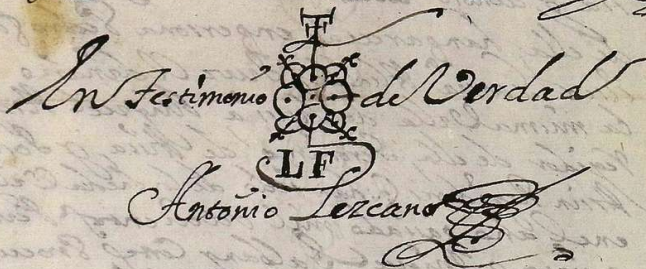 T
En testimonio de Verdad
LF
Antonio Lezcano